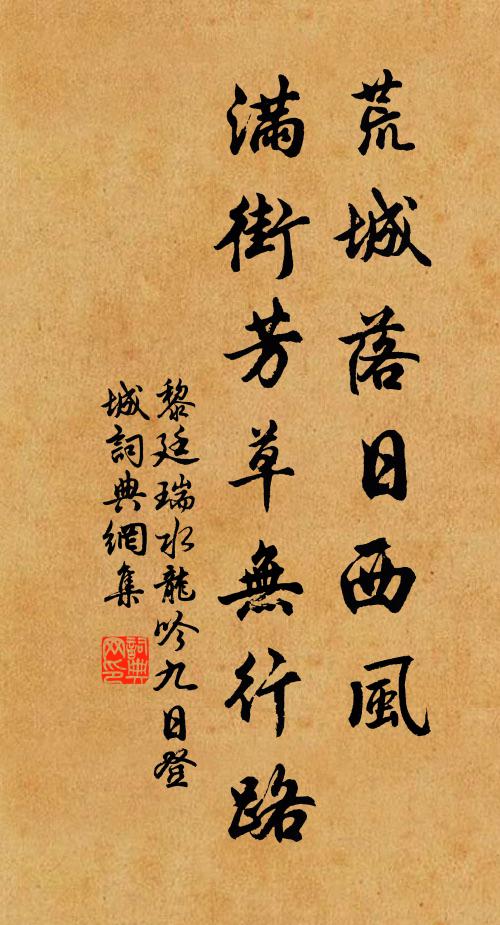 荒城落日西風
滿街芳草無行路
黎廷瑞水龍吟九日登
城詞典網集
詞典
网印